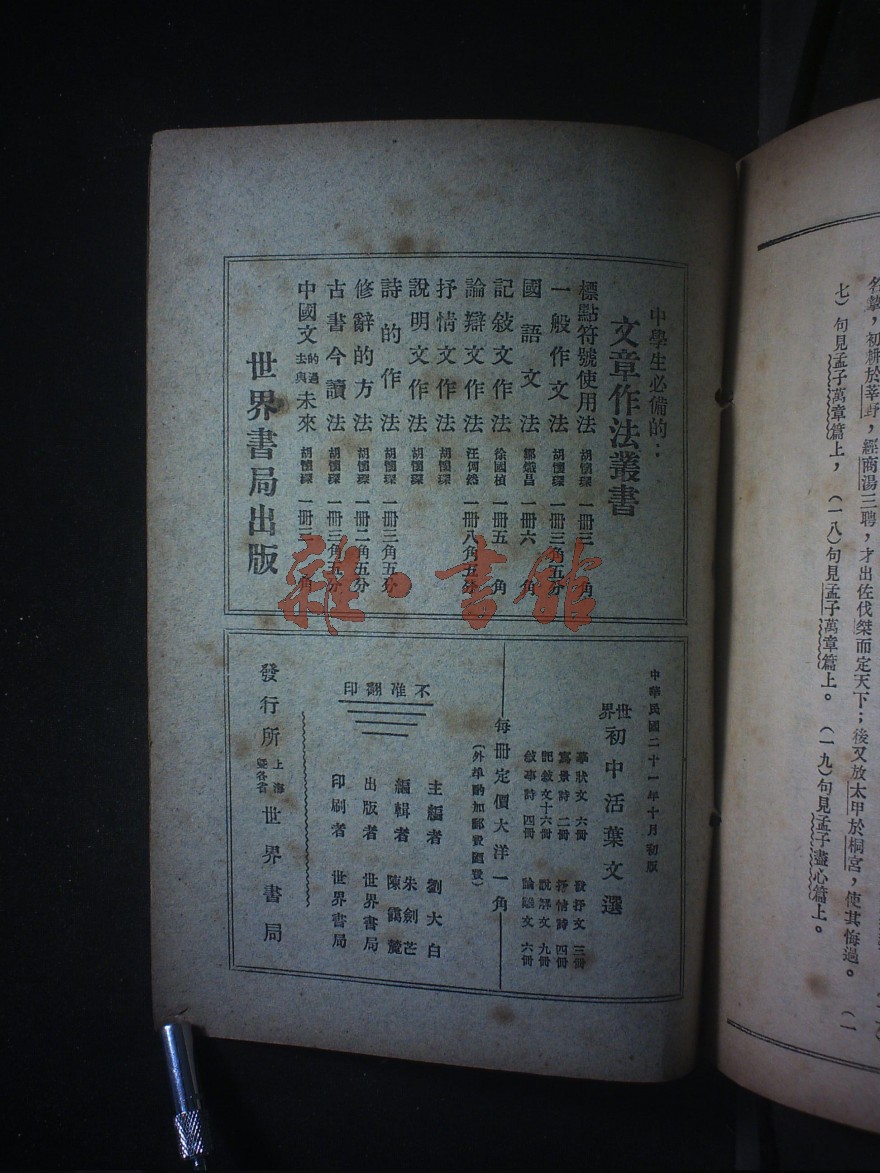 中學生必備的：
文章作法叢書
標點符號使用法 胡懷琛 一冊三角
一般作文法 胡懷琛 一冊三角五分
國語文法 鄒熾昌 一冊六角
記敘文作法 徐國楨 一冊五角
論辯文作法 汪倜然 一冊八角五分
抒情文作法 胡懷琛
說明文作法 胡懷琛
詩的作法 胡懷琛 一冊三角五分
修辭的方法 胡懷琛 一冊二角五分
古書今讀法 胡懷琛 一冊三角五分
中國文的過去與未來 胡懷琛 一冊二角
世界書局出版
雜·書館
中華民國二十一年十月初版
世界初中活葉文選
摹狀文 六冊 發抒文 三冊
寫景詩 二冊 抒情詩 四冊
記敘文十六冊 說解文 九冊
敘事詩 四冊 論辯文 六冊
每冊定價大洋一角
(外埠酌加郵費匯費)
主編者 劉大白
編輯者 朱劍芒 陳靄麓
出版者 世界書局
印刷者 世界書局
不准翻印
發行所 上海暨各省 世界書局
名摯，初耕於莘野，經商湯三聘，才出佐伐桀而定天下；後又放太甲於桐宮，使其悔過。 (一
七)句見孟子萬章篇上， (一八)句見孟子萬章篇上。 (一九)句見孟子盡心篇上。